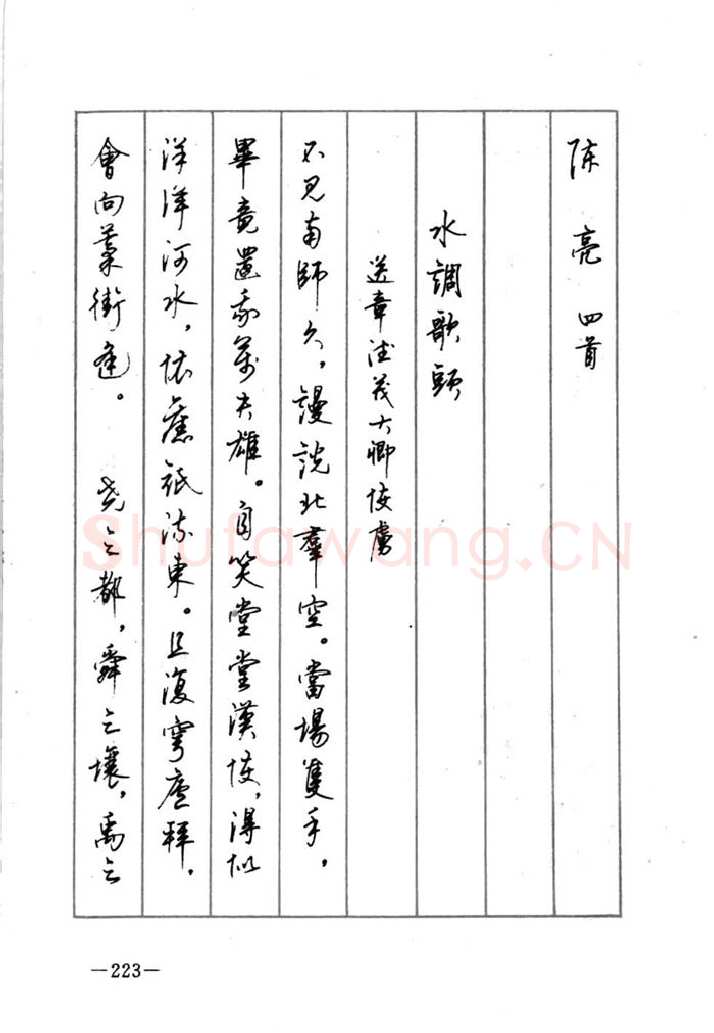 陈亮 四首
水調歌頭
送章德茂大卿使虜
不見南師久，謾説北羣空。當場隻手，
畢竟還我萬夫雄。自笑堂堂漢使，得似
洋洋河水，依舊祇流東。且復穹廬拜，
會向藁街逢。 堯之都，舜之壤，禹之
Shufawang.CN
—223—